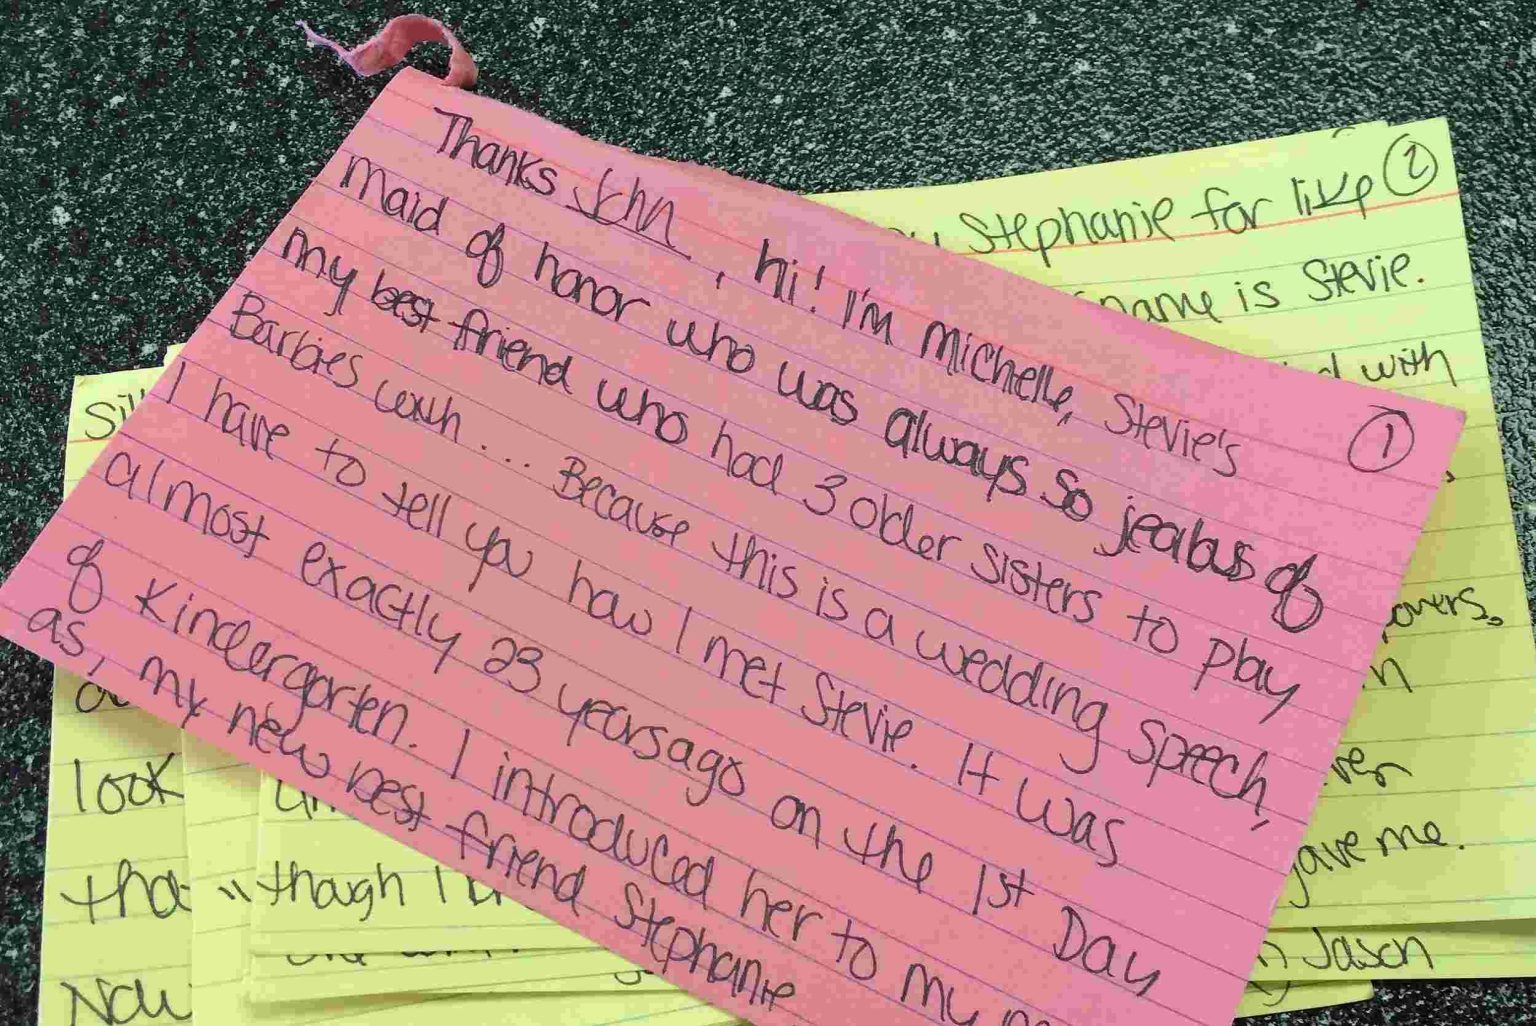 Thanks John, hi! I'm Michelle, Stevie's
①
maid of honor who was always so jealous of
my best friend who had 3 older sisters to play
Barbies with... Because this is a wedding speech,
I have to tell you how I met Stevie. It was
almost exactly 23 years ago on the 1st Day
of Kindergarten. I introduced her to my
as, my new best friend Stephanie
②
Stephanie for like
name is Stevie.
with
gave me.
Jason
look
though I